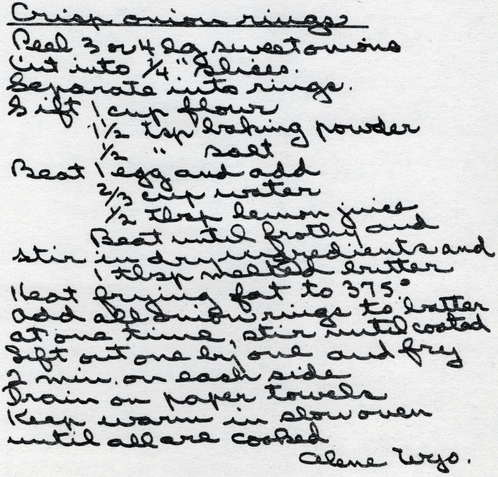 Crisp onion rings
Peel 3 or 4 lg sweet onions
Cut into 1/4" slices.
Separate into rings.
Sift 1 cup flour
1 1/2 tsp baking powder
1/2 " salt
Beat 1 egg and add
2/3 cup water
1/2 tbsp lemon juice
Beat until frothy and
stir in dry ingredients and
1 tbsp melted butter
Heat frying fat to 375°.
Add all onion rings to batter
at one time, stir until coated
Lift out one by one and fry
2 min. on each side
Drain on paper towels
Keep warm in slow oven
until all are cooked
Alene Wyo.